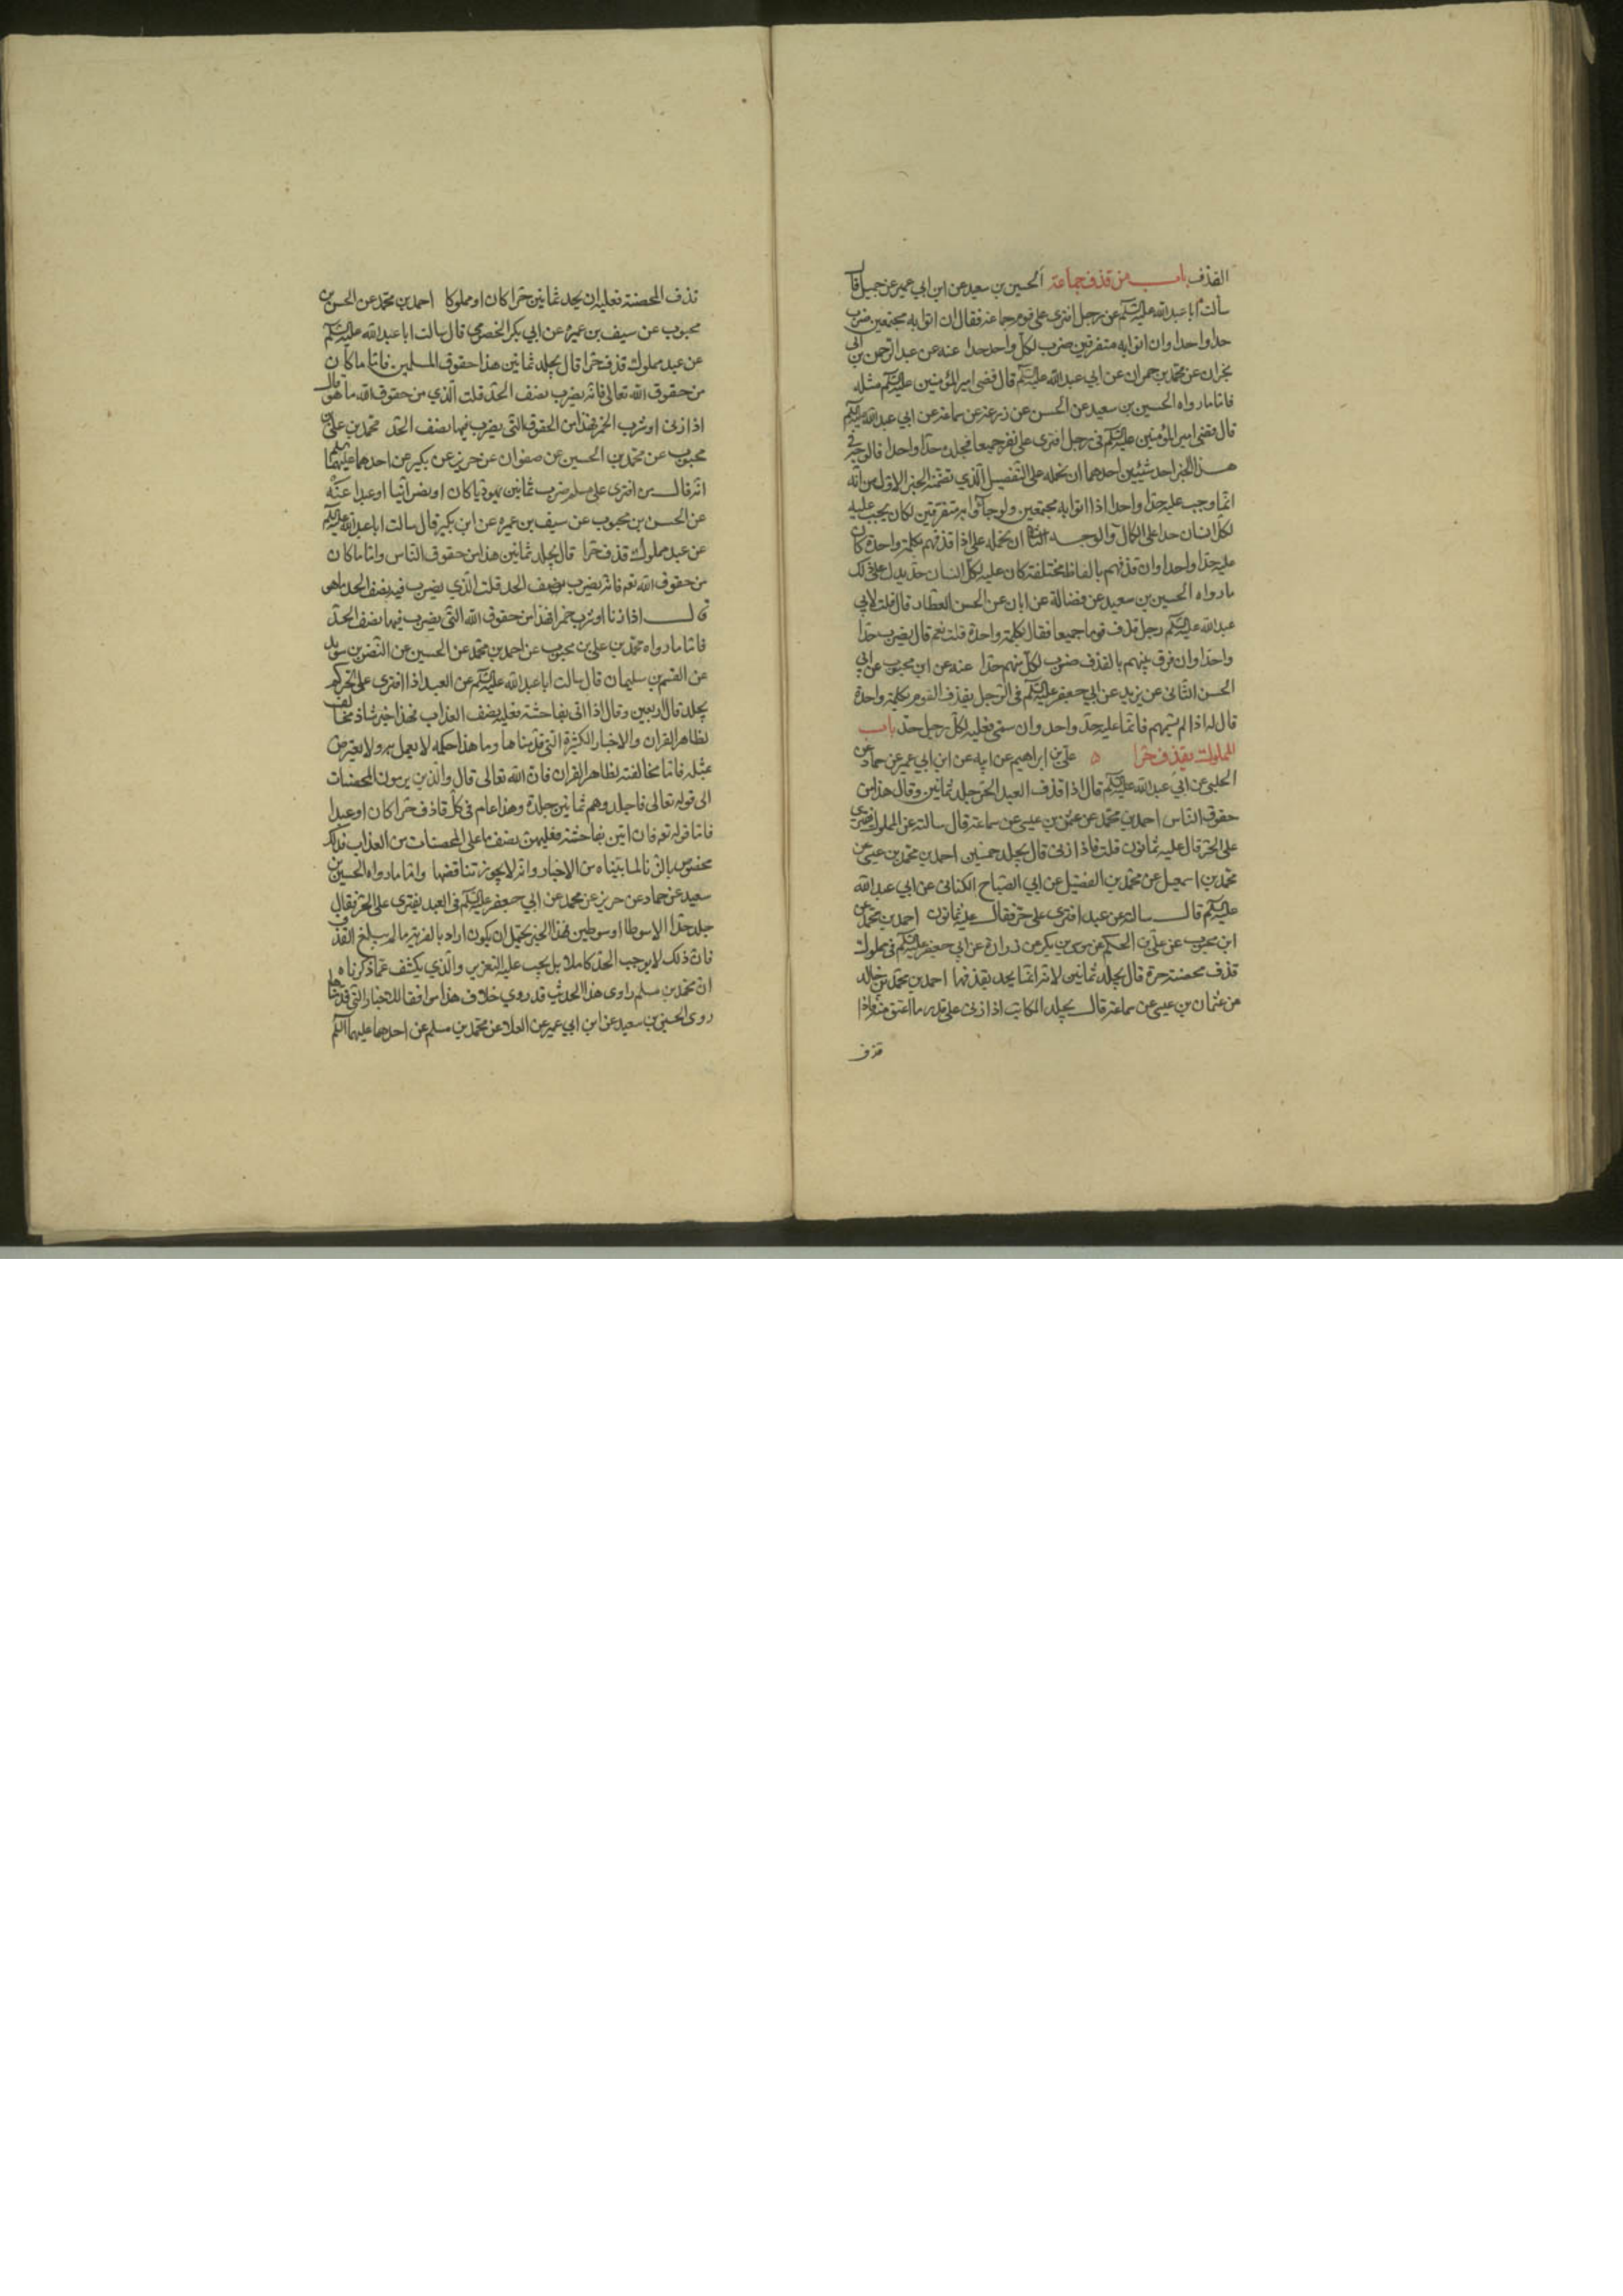 القذف باب من قذف جماعة الحسين بن سعيد عن ابن ابي عمير عن جميل قال
سألت ابا عبد الله عليه السلم عن رجل افترى على قوم جماعة فقال ان اتوا به مجتمعين ضرب
حدا واحدا وان اتوا به متفرقين ضرب لكل واحد حدا عنه عن عبد الرحمن بن ابي
نجران عن محمد بن حمران عن ابي عبد الله عليه السلم قال قضى امير المؤمنين عليه السلم مثله
فاما ما رواه الحسين بن سعيد عن الحسن عن زرعة عن سماعة عن ابي عبد الله عليه السلم
قال قضى امير المؤمنين عليه السلم في رجل افترى على نفر جميعا فجلده حدا واحدا فالوجه في
هذا الخبر احد شيئين احدهما ان نحمله على التفصيل الذي تضمنه الخبر الاول من انه
انما وجب عليه حدا واحدا اذا اتوا به مجتمعين ولو جآؤا به متفرقين لكان يجب عليه
لكل انسان حدا على الكمال والوجه الثاني ان نحمله على اذا قذفهم بكلمة واحدة كان
عليه حدا واحدا وان قذفهم بالفاظ مختلفة كان عليه لكل انسان حد يدل على ذلك
ما رواه الحسين بن سعيد عن فضالة عن ابان عن الحسن العطار قال قلت لابي
عبد الله عليه السلم رجل قذف قوما جميعا فقال بكلمة واحدة قلت نعم قال يضرب حدا
واحدا وان فرق بينهم بالقذف ضرب لكل منهم حدا عنه عن ابن محبوب عن ابي
الحسن الثانى عن يزيد عن ابي جعفر عليه السلم فى الرجل يقذف القوم بكلمة واحدة
قال له اذا لم يسمهم فانما عليه حد واحد وان سمى فعليه لكل رجل حد باب
المملوك يقذف حرا ٥ على بن ابراهيم عن ابيه عن ابن ابي عمير عن حماد عن
الحلبى عن ابي عبد الله عليه السلم قال اذا قذف العبد الحر جلد ثمانين وقال هذا من
حقوق الناس احمد بن محمد عن عثمن بن عيسى عن سماعة قال سالته عن المملوك يفترى
على الحر قال عليه ثمانون قلت فاذا زنى قال يجلد خمسين احمد بن محمد بن عيسى عن
محمد بن اسمعيل عن محمد بن الفضيل عن ابي الصباح الكنانى عن ابي عبد الله
عليه السلم قال سالته عن عبد افترى على حر فقال عليه ثمانون احمد بن محمد عن
ابن محبوب عن على بن الحكم عن موسى بن بكر عن زرارة عن ابي جعفر عليه السلم فى مملوك
قذف محصنة حرة قال يجلد ثمانين لانه انما يحد بقذفها احمد بن محمد بن خالد
عن عثمان بن عيسى عن سماعة قال يجلد المكاتب اذا زنى على قدر ما اعتق منه فاذا
قذف
قذف المحصنة فعليه ان يحد ثمانين حرا كان او مملوكا احمد بن محمد عن الحسن بن
محبوب عن سيف بن عميرة عن ابي بكر الحضرمي قال سالت ابا عبد الله عليه السلم
عن عبد مملوك قذف حرا قال يجلد ثمانين هذا حقوق المسلمين فاما ما كان
من حقوق الله تعالى فانه يضرب نصف الحد قلت الذي من حقوق الله ما هو قال
اذا زنى او شرب الخمر فهذا من الحقوق التى يضرب فيها نصف الحد محمد بن على بن
محبوب عن محمد بن الحسين عن صفوان عن حريز عن بكير عن احدهما عليهما السلم
انه قال من افترى على مسلم ضرب ثمانين يهوديا كان او نصرانيا او عبدا عنه
عن الحسن بن محبوب عن سيف بن عميرة عن ابن بكير قال سالت ابا عبد الله عليه السلم
عن عبد مملوك قذف حرا قال يجلد ثمانين هذا من حقوق الناس واما ما كان
من حقوق الله تعه فانه يضرب نصف الحد قلت الذي يضرب فيه نصف الحد ما هو
قال اذا زنا او شرب خمرا فهذا من حقوق الله التى يضرب فيها نصف الحد
فاما ما رواه محمد بن على بن محبوب عن احمد بن محمد عن الحسين عن النضر بن سويد
عن القسم بن سليمان قال سالت ابا عبد الله عليه السلم عن العبد اذا افترى على الحر كم
يجلد قال اربعين وقال اذا اتى بفاحشة فعليه نصف العذاب فهذا خبر شاذ مخالف
لظاهر القران والاخبار الكثيرة التى قدمناها وما هذا حكمه لا يعمل به ولا يعترض
بمثله فاما مخالفته لظاهر القران فان الله تعالى قال والذين يرمون المحصنات
الى قوله تعالى فاجلدوهم ثمانين جلدة وهذا عام فى كل قاذف حرا كان او عبدا
فاما قوله تعه فان اتين بفاحشة فعليهن نصف ما على المحصنات من العذاب فذلك
مخصوص بالزنا لما بيناه من الاخبار وانه لا يجوز تناقضها واما ما رواه الحسين بن
سعيد عن حماد عن حريز عن محمد عن ابي جعفر عليه السلم فى العبد يفترى على الحر فقال
يجلد حدا الا سوطا او سوطين فهذا الخبر يحتمل ان يكون اراد بالفرية ما لم يبلغ القذف
فان ذلك لا يوجب الحد كاملا بل يجب عليه التعزير والذي يكشف عما ذكرناه
ان محمد بن مسلم راوى هذا الحديث قد روي خلاف هذا موافقا للاخبار التى قدمناها
روى الحسين بن سعيد عن ابن ابي عمير عن العلا عن محمد بن مسلم عن احدهما عليهما السلم